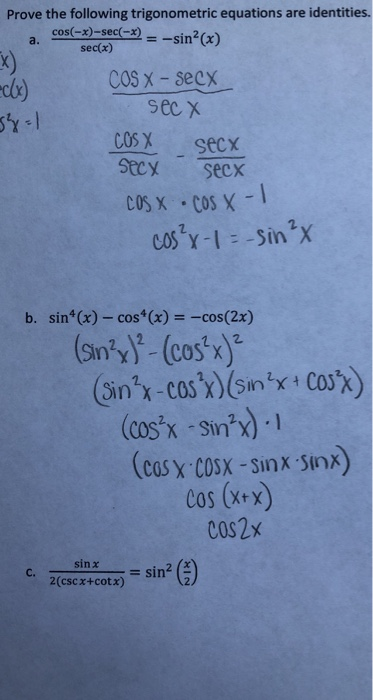 Prove the following trigonometric equations are identities.
a. cos(-x)-sec(-x) / sec(x) = -sin²(x)
x)
ec(x)
s²x = 1
cos x - sec x
sec x
cos x / sec x - sec x / sec x
cos x · cos x - 1
cos²x - 1 = -sin²x
b. sin⁴(x) - cos⁴(x) = -cos(2x)
(sin²x)² - (cos²x)²
(sin²x - cos²x)(sin²x + cos²x)
(cos²x - sin²x) · 1
(cos x · cos x - sin x · sin x)
cos (x+x)
cos2x
c. sin x / 2(csc x+cot x) = sin² (x/2)